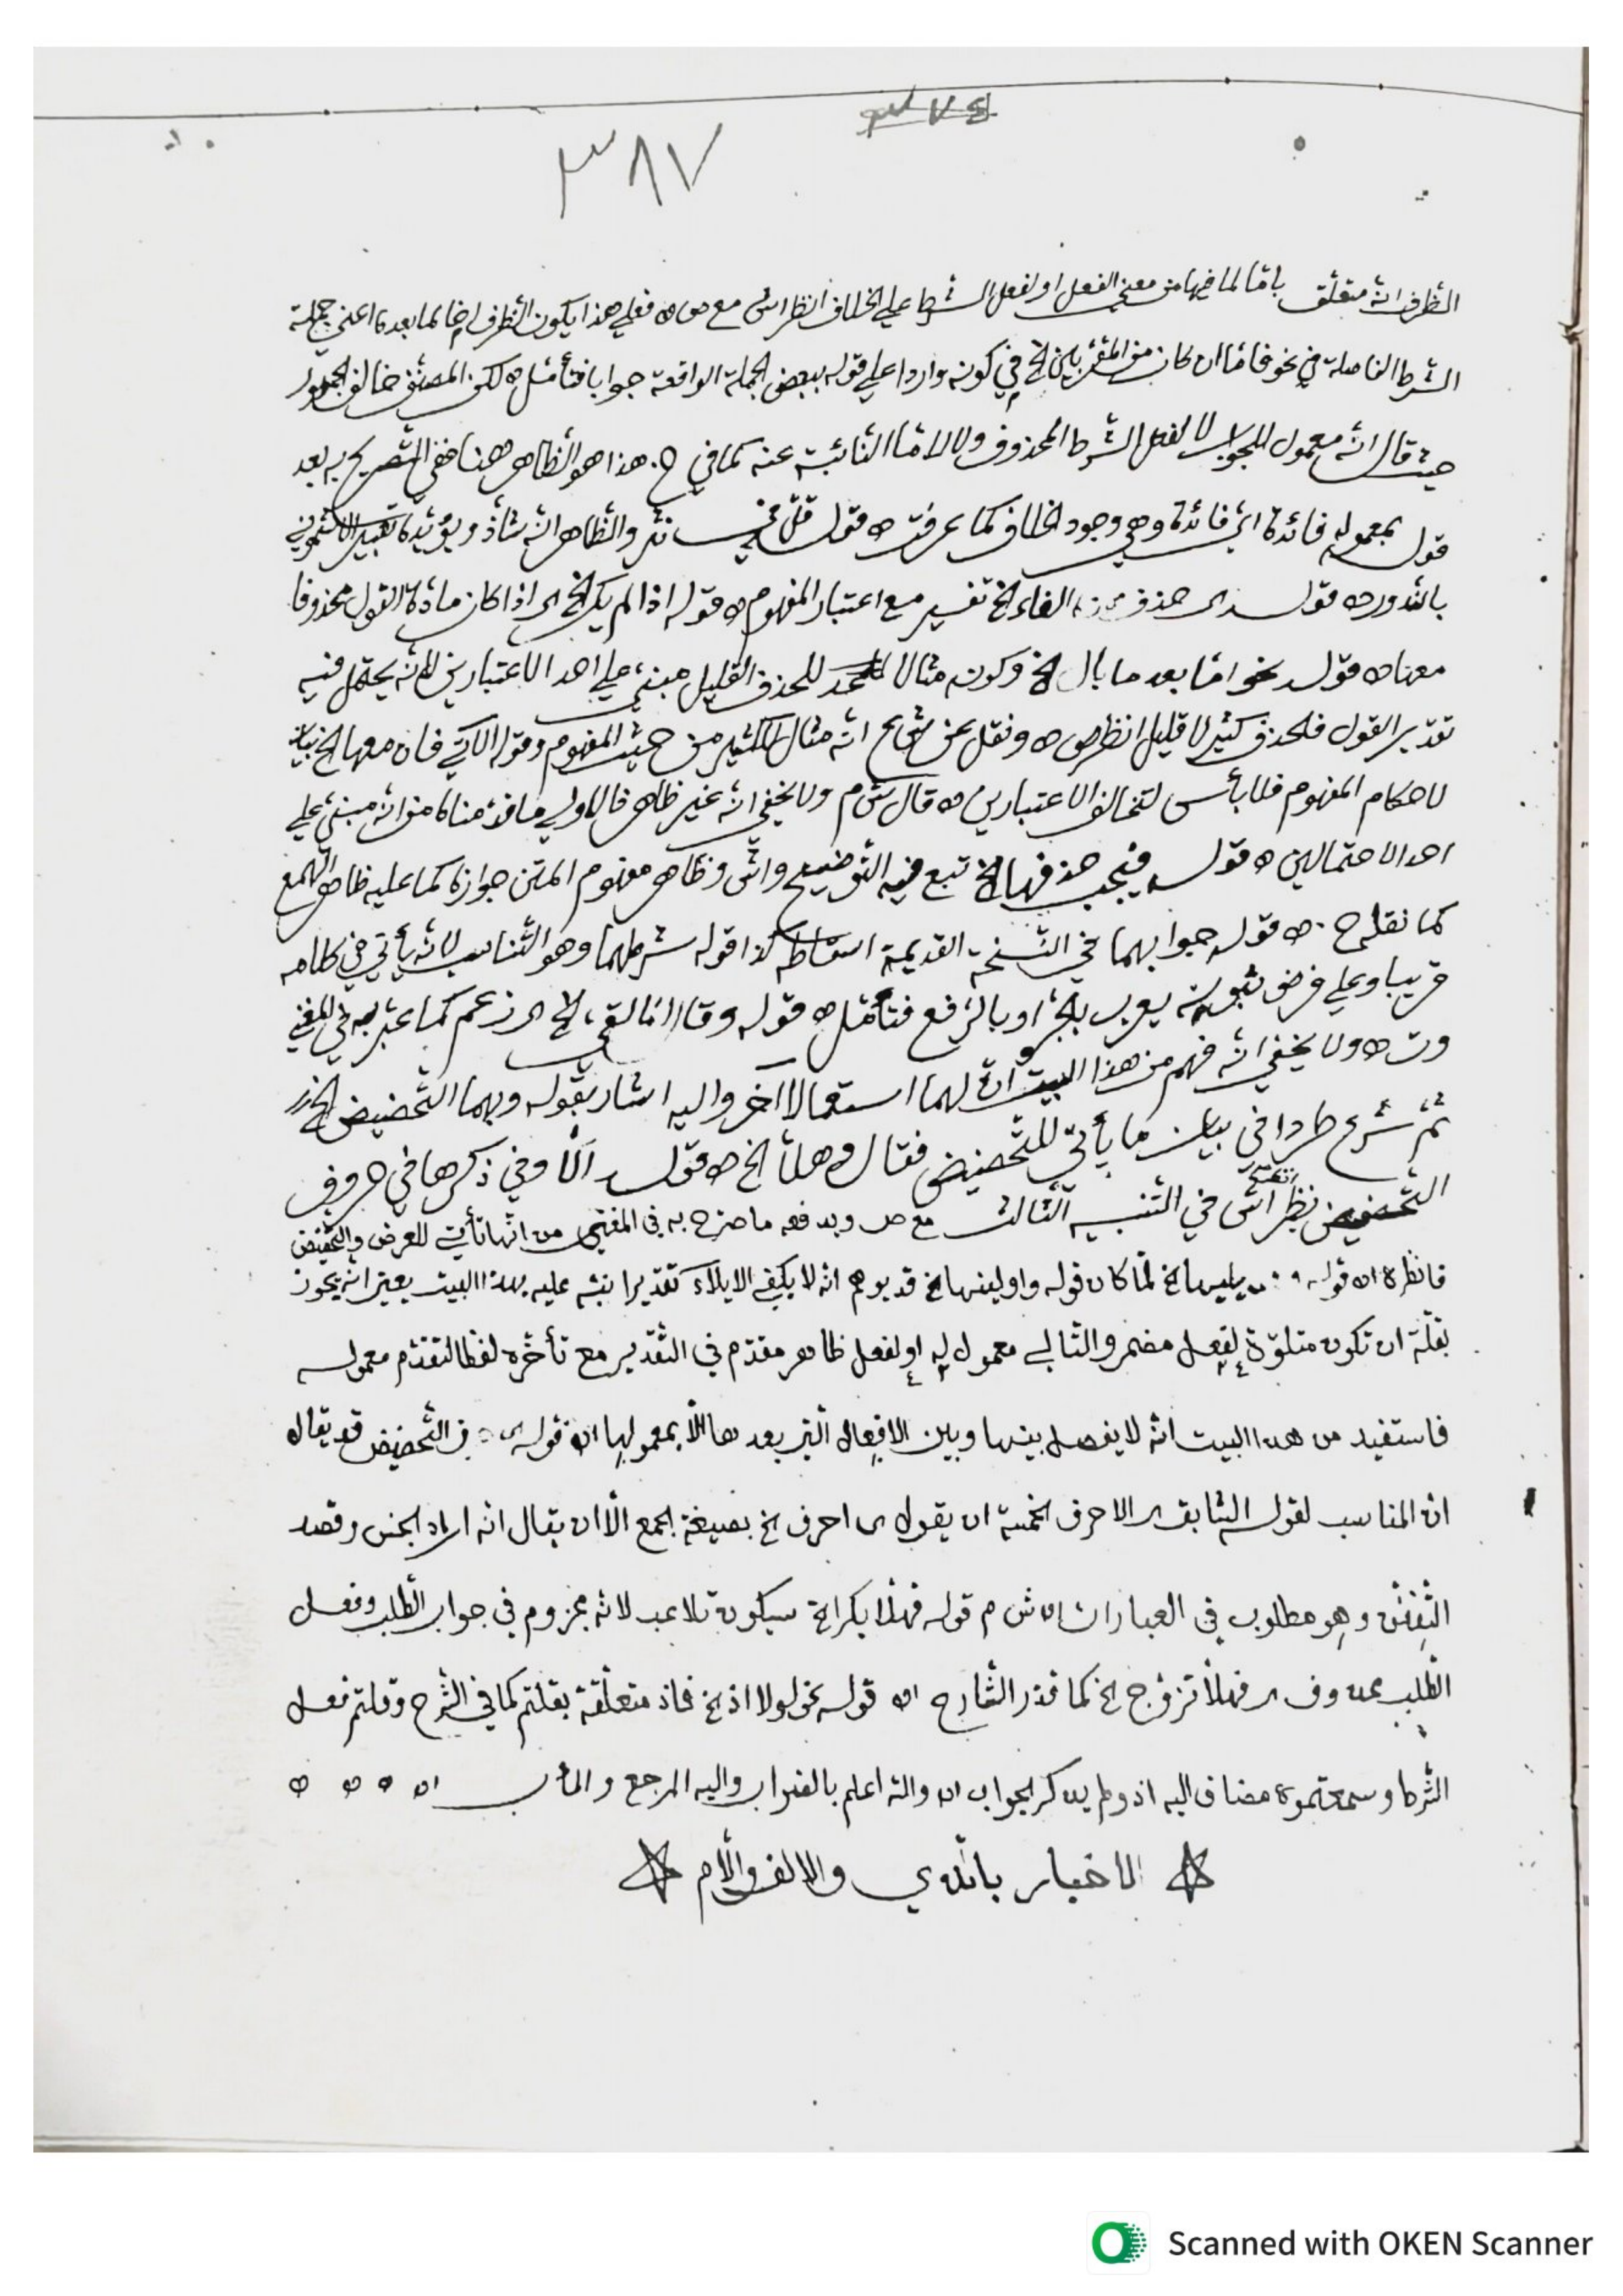 ٣٧٤
٣٨٧
الظرف انه متعلق باما لما فيها من معنى الفعل او لفعل الشرط على الخلاف انظر اش مع ص اه فعلى هذا يكون الظرف لما بعده اعني جملة
الشرط الفاصلة في نحو فاما ان كان من المقربين الخ في كونه واردا على قوله ببعض الجملة الواقعة جوابا فتأمل اه لكن المصنف خالف الجمهور
حيث قال انه معمول للجواب لا لفعل الشرط المحذوف ولا لاما النائبة عنه كما في ح. هذا هو الظاهر هنا ففي التصريح به بعد
قول بمعموله فائدة اي فائدة وهي وجود الخلاف كما عرفت اه قول قل في نثر والظاهر انه شاذ ويؤيده تعبير الاشموني
بالندور اه قول حذف الفاء الخ تفسير مع اعتبار المفهوم اه قوله اذا لم يك الخ اى اذا كان مادة القول محذوفا
معها اه قول نحو اما بعد ما بال الخ وكونه مثالا للحذف القليل مبني على احد الاعتبارين لانه يحتمل فيه
تقدير القول فلحذف كثير لا قليل انظر ص اه ونقل عن ش ح انه مثال للكثير من حيث المفهوم وقوله الآتي فان معها الخ بيان
لاحكام المفهوم فلا بأس لتخالف الاعتبارين اه قال ش م ولا يخفى انه غير ظاهر فالاولى ما قدمناه من انه مبني على
احد الاحتمالين اه قول فيجب حذفها الخ تبع فيه التوضيح واش وظاهر مفهوم المتن جوازه كما عليه ظاهر الهمع
كما نقله ح. اه قوله جوابهما في النسخة القديمة اسقاطه كذا قوله شرطهما وهو التناسب لانه يأتي في كلامه
قريبا وعلى فرض ثبوته يعرب بالجر او بالرفع فتأمل اه قوله وقارا الخ اى زعم كما عبر به في المغني
وت اه ولا يخفى انه فهم من هذا البيت ان لهما استعمالا آخر واليه اشار بقوله وبهما التحضيض الخ
ثم شرع طردا في بيان ما يأتي للتحضيض فقال وهلا الخ اه قول الا وفي ذكرها في حروف
التحضيض نظر انتهى اش في التنبيه الثالث مع ص ويدفعه ما صرح به في المغني من انها تأتي للعرض والتحضيض
فانظره اه قوله يليها الخ لما كان قوله واولينها الخ قد يوهم انه لا يكفي الايلاء تقديرا نبه عليه بهذا البيت يعني انه يجوز
بقلة ان تكون متلوة لفعل مضمر والتالي معمول له او لفعل ظاهر مقدم في التقدير مع تأخره لفظا لتقدم معموله
فاستفيد من هذا البيت انه لا يفصل بينها وبين الافعال التي بعدها الا بمعمولها اه قوله التحضيض قد يقال
ان المناسب لقول السابق اى الاحرف الخمسة ان يقول اى احرف الخ بصيغة الجمع الا ان يقال انه اراد الجنس وقصد
التفنن وهو مطلوب في العبارات اه ش م قوله فهلا بكرا الخ سيكون تلاعب لانه مجزوم في جواب الطلب وفعل
الطلب محذوف اى فهلا تزوج الخ كما قدر الشارح اه قوله نحو لولا اذ الخ فاذ متعلقة بقلتم كما في الشرح وقلتم فعل
الشرط وسمعتموه مضاف اليه اذ ولم يذكر الجواب اه والله اعلم بالصواب واليه المرجع والمآب اه
الاخبار بالذي والالف واللام
Scanned with OKEN Scanner